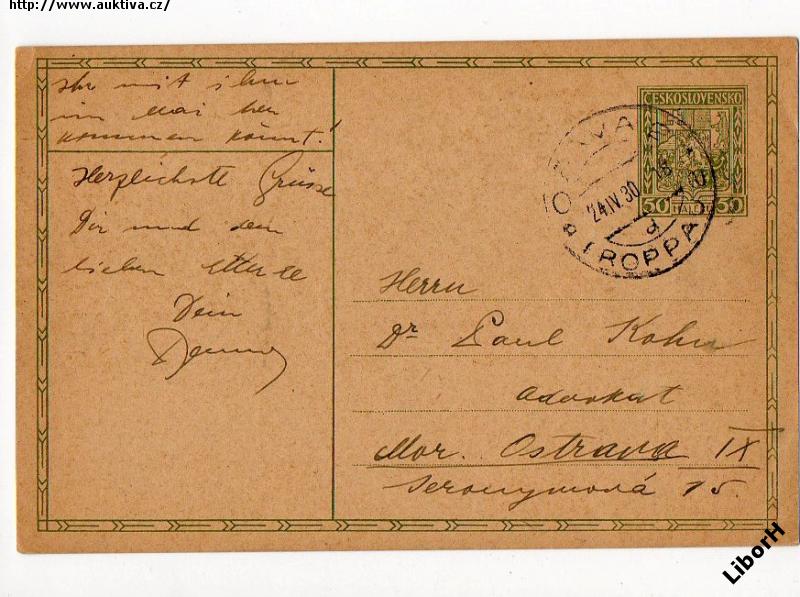 http://www.auktiva.cz/
Ihr mit ihm
im Mai her
kommen könnt!
Herzlichste Grüsse
Dir und den
lieben
Dein
ČESKOSLOVENSKO
50 HALÉŘŮ 50
OPAVA
24.IV.30
TROPPAU
Herrn
Dr Paul Kohn
Advokat
Mor. Ostrava IX
15.
LiborH